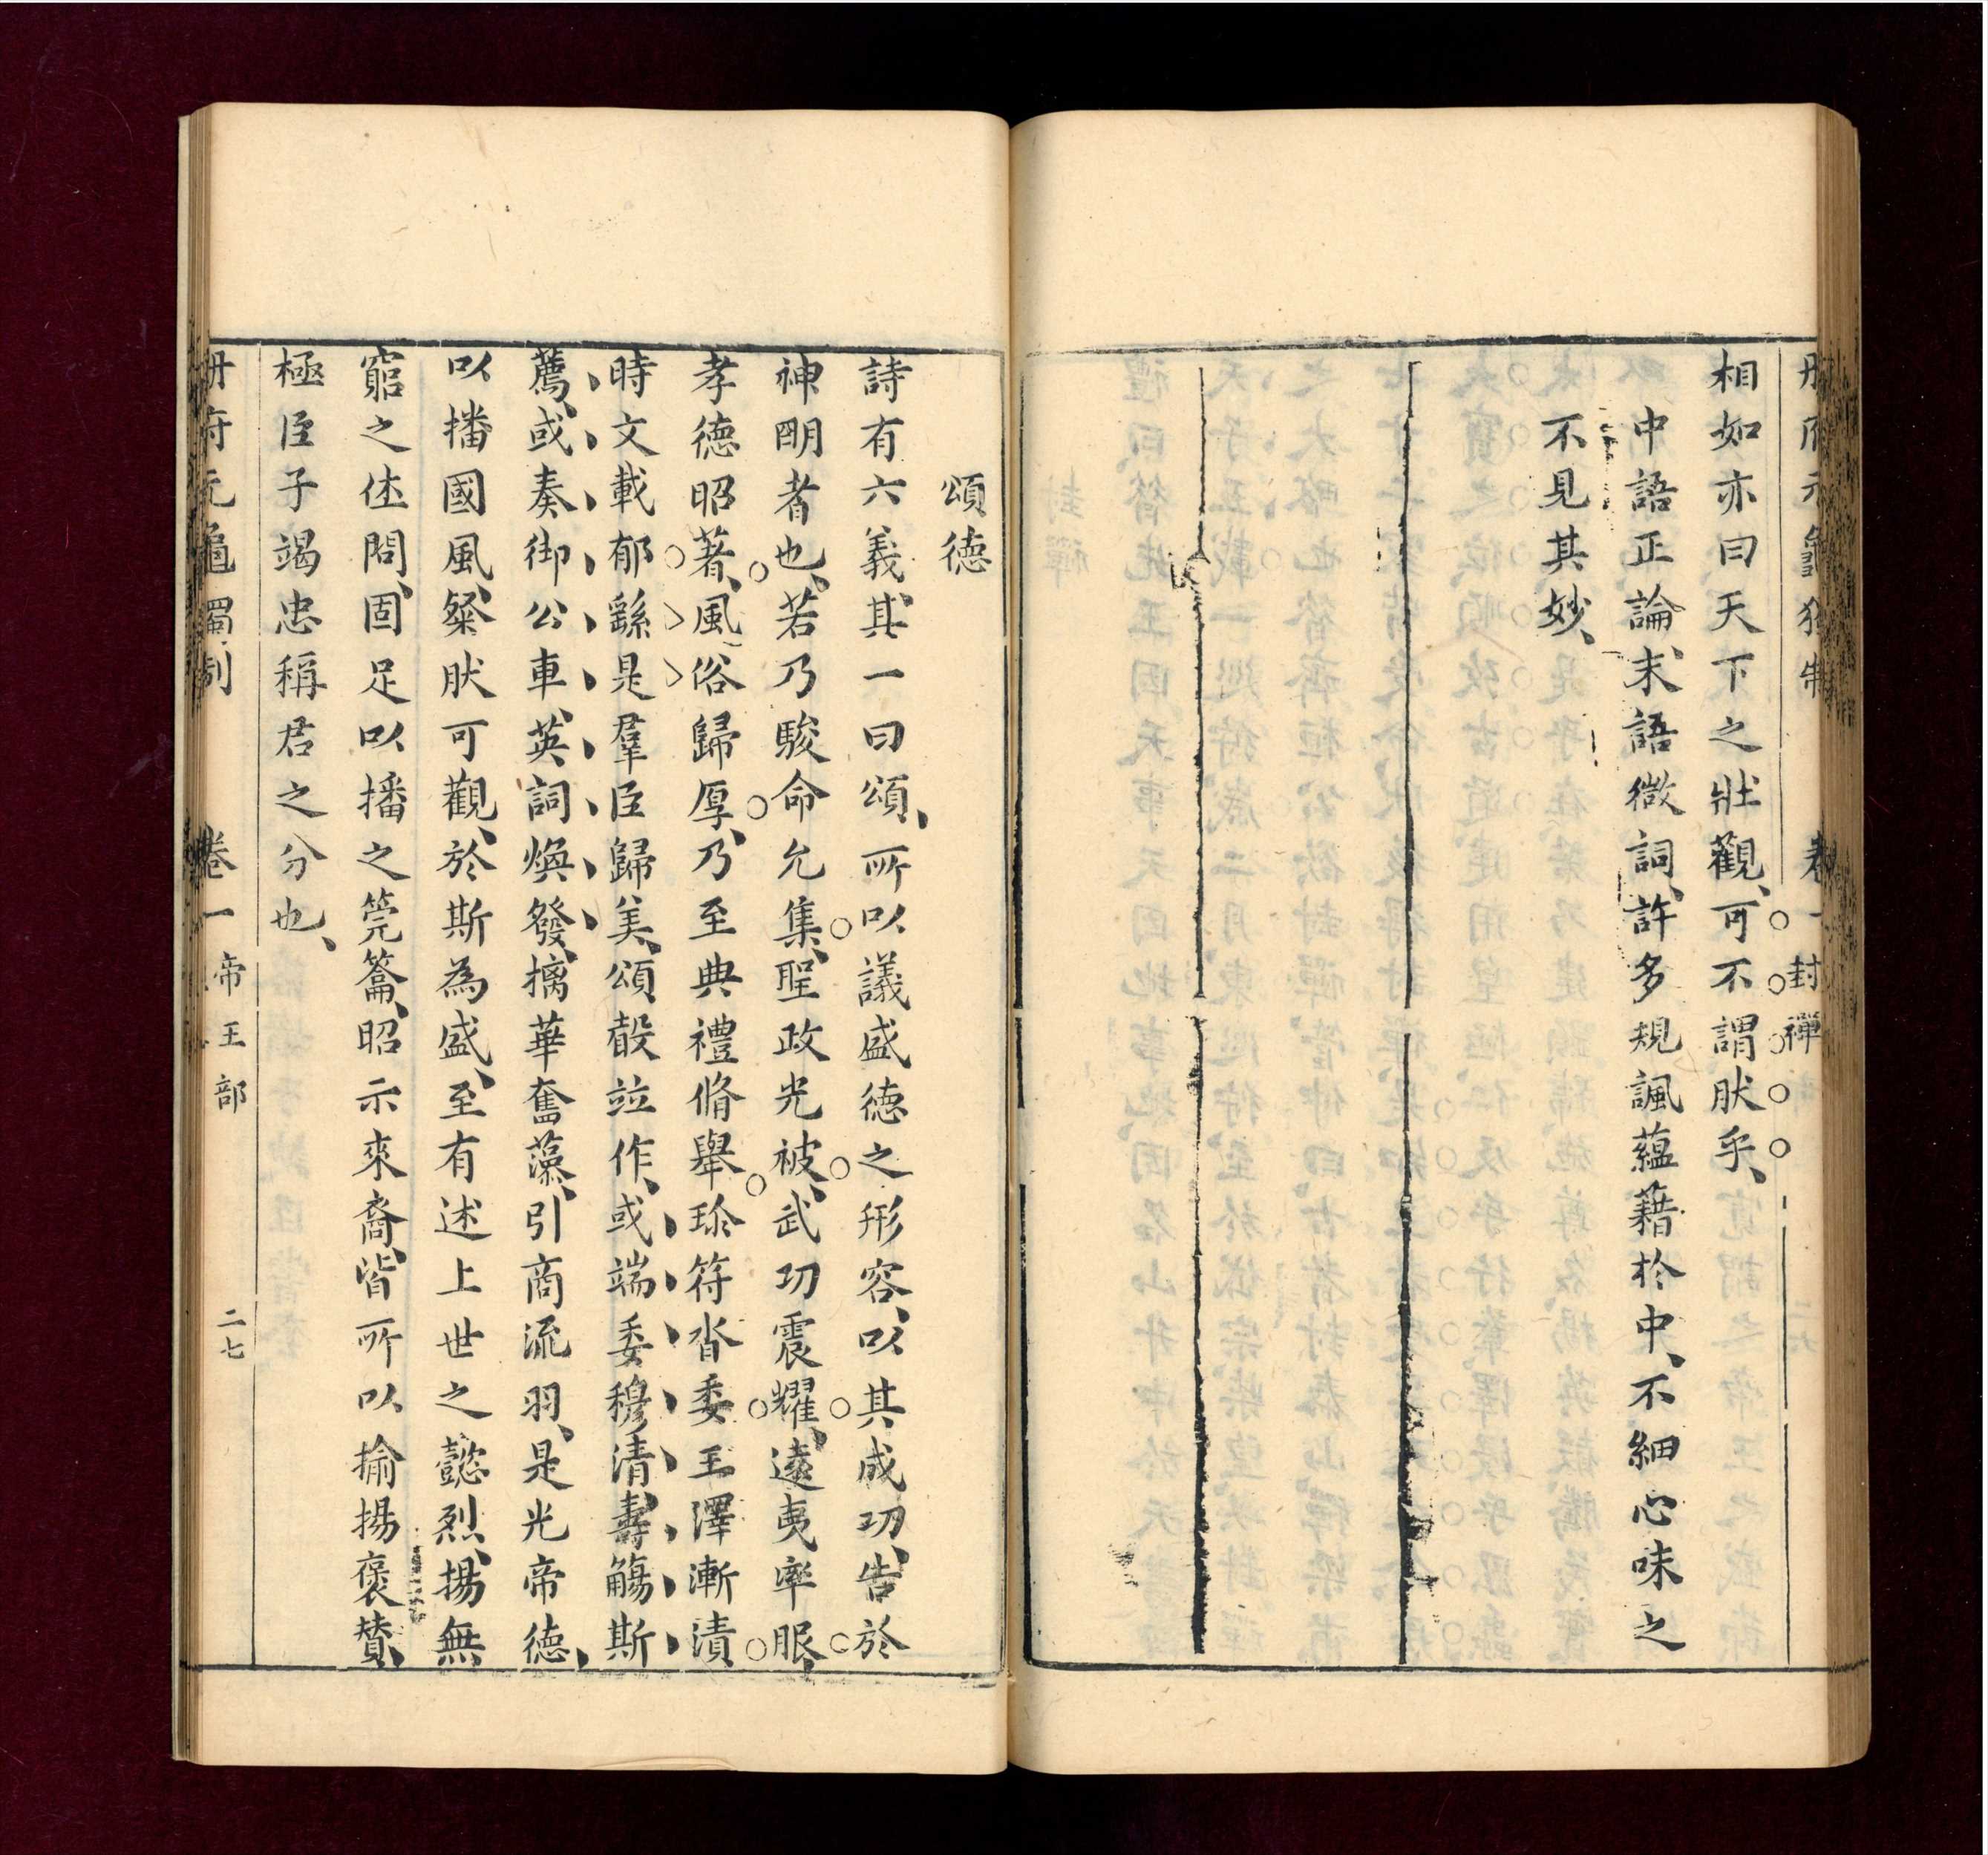 冊府元龜獨制 卷一 封禪
相如亦曰天下之壯觀、可不謂肰乎、
中語正論、末語微詞、許多規諷蘊藉於中、不細心味之
不見其妙、
頌德
詩有六義、其一曰頌、所以議盛德之形容、以其成功、告於
神明者也、若乃駿命允集、聖政光被、武功震耀、遠夷率服、
孝德昭著、風俗歸厚、乃至典禮脩舉、珍符沓委、王澤漸漬
時文載郁、繇是羣臣歸美、頌聲竝作、或端委穆清、壽觴斯
薦、或奏御公車、英詞煥發、摛華奮藻、引商流羽、是光帝德、
以播國風、粲肰可觀、於斯為盛、至有述上世之懿烈、揚無
窮之休問、固足以播之筦籥、昭示來裔、皆所以揄揚褒贊、
極臣子竭忠稱君之分也、
冊府元龜獨制 卷一 帝王部 二七